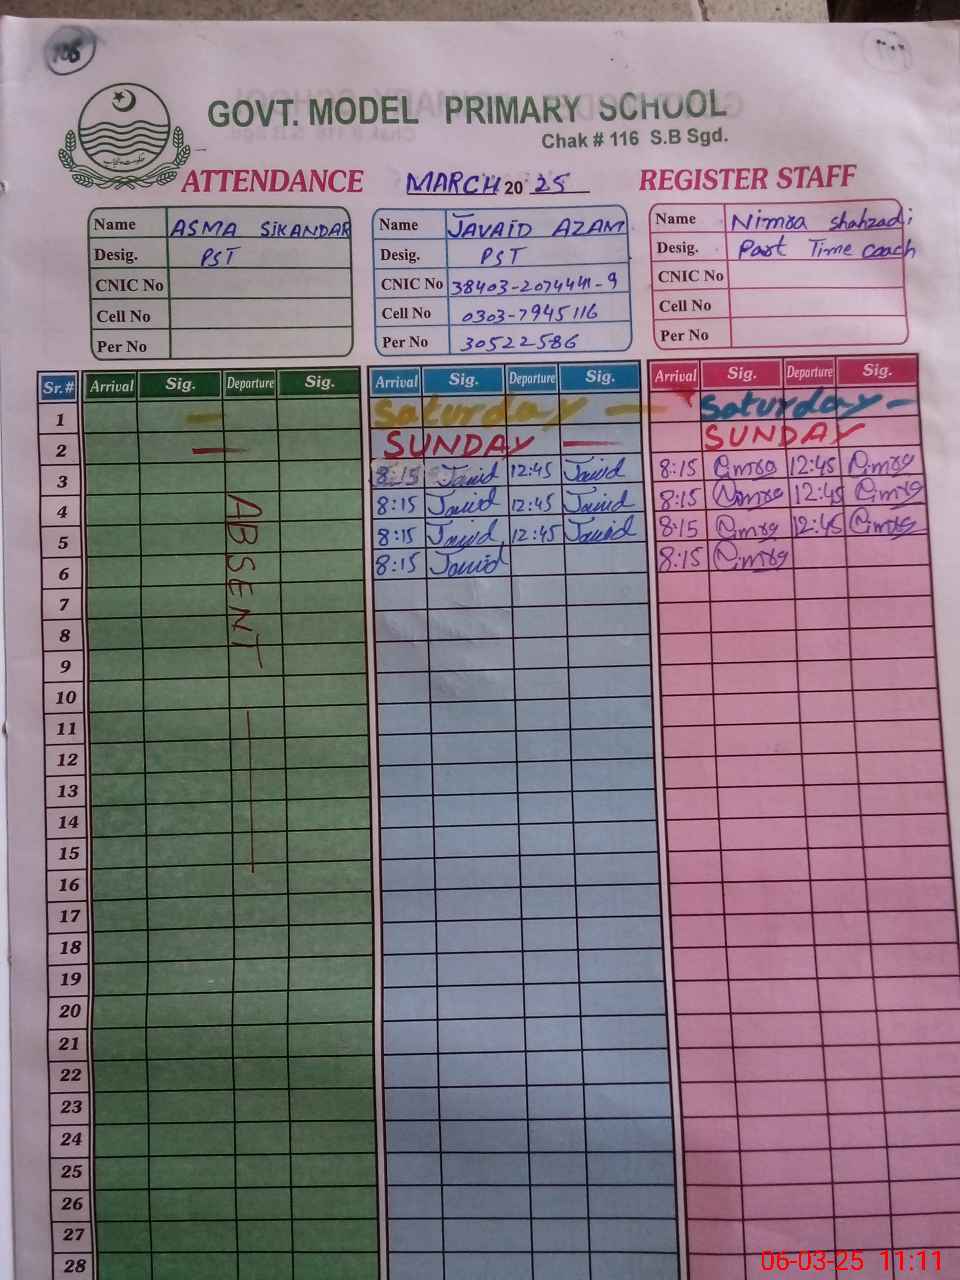 106
GOVT. MODEL PRIMARY SCHOOL
Chak # 116 S.B Sgd.
ATTENDANCE MARCH 2025 REGISTER STAFF
Name ASMA SIKANDAR Name JAVAID AZAM Name Nimra shahzadi
Desig. PST Desig. PST Desig. Part Time coach
CNIC No CNIC No 38403-2074441-9 CNIC No
Cell No Cell No 0303-7945116 Cell No
Per No Per No 30522586 Per No
Sr.# Arrival Sig. Departure Sig. Arrival Sig. Departure Sig. Arrival Sig. Departure Sig.
1 — Saturday — Saturday —
2 — SUNDAY — SUNDAY
3 8:15 Javid 12:45 Javid 8:15 Nimra 12:45 Nimra
4 8:15 Javid 12:45 Javid 8:15 Nimra 12:45 Nimra
5 8:15 Javid 12:45 Javid 8:15 Nimra 12:45 Nimra
6 8:15 Javid 8:15 Nimra
ABSENT
7
8
9
10
11
12
13
14
15
16
17
18
19
20
21
22
23
24
25
26
27
28
06-03-25 11:11